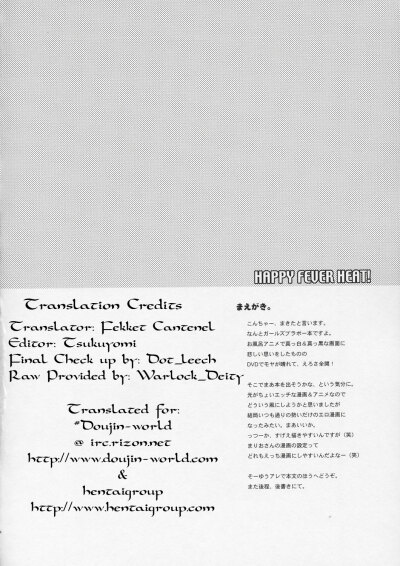 HAPPY FEVER HEAT!
Translation Credits
Translator: Fekket Cantenel
Editor: Tsukuyomi
Final Check up by: Dot_Leech
Raw Provided by: Warlock_Deity
Translated for:
#Doujin-world
@ irc.rizon.net
http://www.doujin-world.com
&
hentaigroup
http://www.hentaigroup.com
まえがき。
こんちゃー、まきたと言います。
なんとガールズブラボー本ですよ。
お風呂アニメで真っ白＆真っ黒な画面に
悲しい思いをしたものの
DVDでモヤが晴れて、えろさ全開！
そこでまあ本を出そうかな、という気分に。
元がちょいエッチな漫画＆アニメなので
どういう風にしようかと思いましたが
結局いつも通りの勢いだけのエロ漫画に
なったみたい。まあいいか。
っつーか、すげえ描きやすいんですが（笑）
まりおさんの漫画の設定って
どれもえっち漫画にしやすいんだよなー（笑）
そーゆうアレで本文のほうへどうぞ。
また後程、後書きにて。